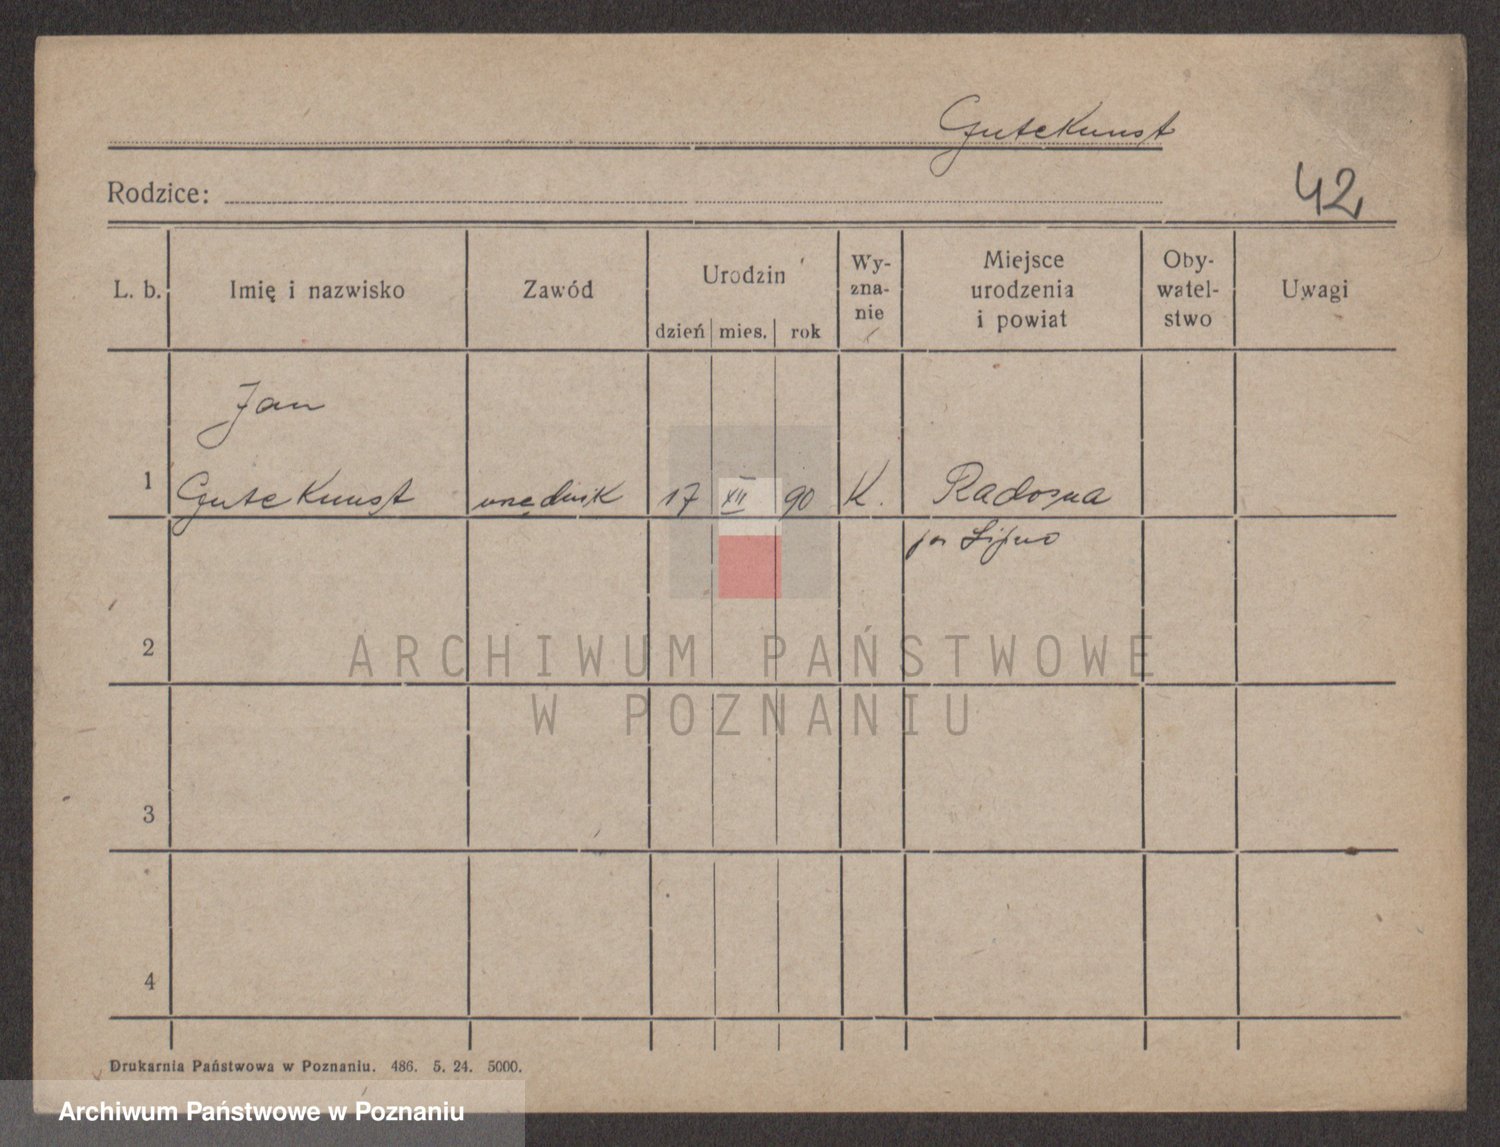 Gutekunst
Rodzice:
42
L. b.
Imię i nazwisko
Zawód
Urodzin
dzień mies. rok
Wy-
zna-
nie
Miejsce
urodzenia
i powiat
Oby-
watel-
stwo
Uwagi
Jan
1 Gutekunst urzędnik 17 XII 90 K. Radosna
pow Lipno
2
3
4
ARCHIWUM PAŃSTWOWE
W POZNANIU
Drukarnia Państwowa w Poznaniu. 486. 5. 24. 5000.
Archiwum Państwowe w Poznaniu